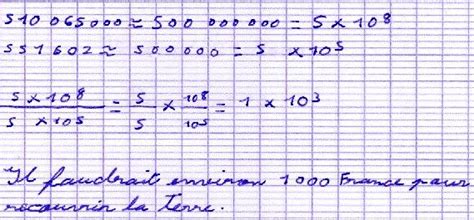 510 065 000 ≈ 500 000 000 = 5 × 10⁸
551 602 ≈ 500 000 = 5 × 10⁵
5 × 10⁸ / 5 × 10⁵ = 5/5 × 10⁸/10⁵ = 1 × 10³
Il faudrait environ 1000 France pour
recouvrir la Terre.